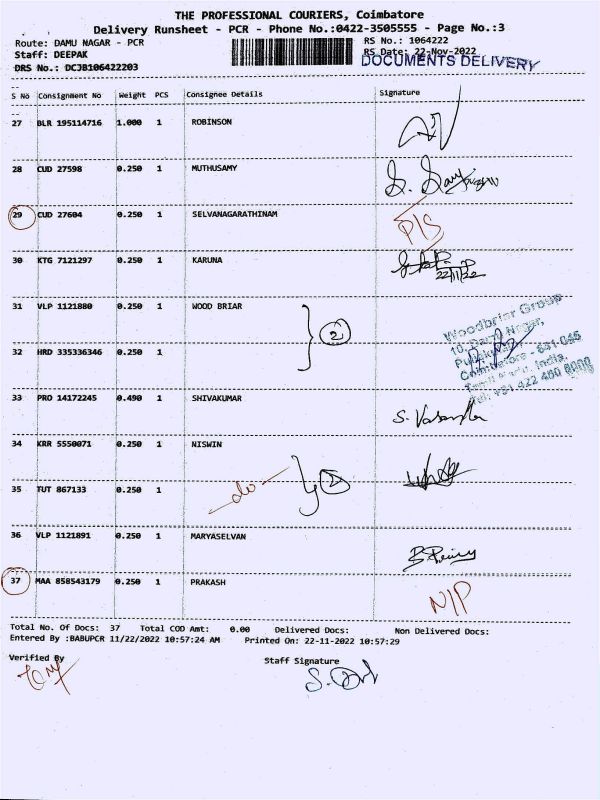 THE PROFESSIONAL COURIERS, Coimbatore
Delivery Runsheet - PCR - Phone No.:0422-3505555 - Page No.:3
Route: DAMU NAGAR - PCR RS No.: 1064222
Staff: DEEPAK RS Date: 22-Nov-2022
DRS No.: DCJB106422203 DOCUMENTS DELIVERY
S No Consignment No Weight PCS Consignee Details Signature
27 BLR 195114716 1.000 1 ROBINSON
28 CUD 27598 0.250 1 MUTHUSAMY
29 CUD 27604 0.250 1 SELVANAGARATHINAM P/S
30 KTG 7121297 0.250 1 KARUNA
22/11/22
31 VLP 1121880 0.250 1 WOOD BRIAR
2
Woodbriar Group
10, Damu Nagar,
32 HRD 335336346 0.250 1
Coimbatore - 641 045
Tamil Nadu, India.
Tel: +91 422 400 8000
33 PRO 14172245 0.490 1 SHIVAKUMAR
34 KRR 5550071 0.250 1 NISWIN
35 TUT 867133 0.250 1 -do- 2
36 VLP 1121891 0.250 1 MARYSELVAN
37 MAA 858543179 0.250 1 PRAKASH N/P
Total No. Of Docs: 37 Total COD Amt: 0.00 Delivered Docs: Non Delivered Docs:
Entered By :BABUPCR 11/22/2022 10:57:24 AM Printed On: 22-11-2022 10:57:29
Verified By Staff Signature